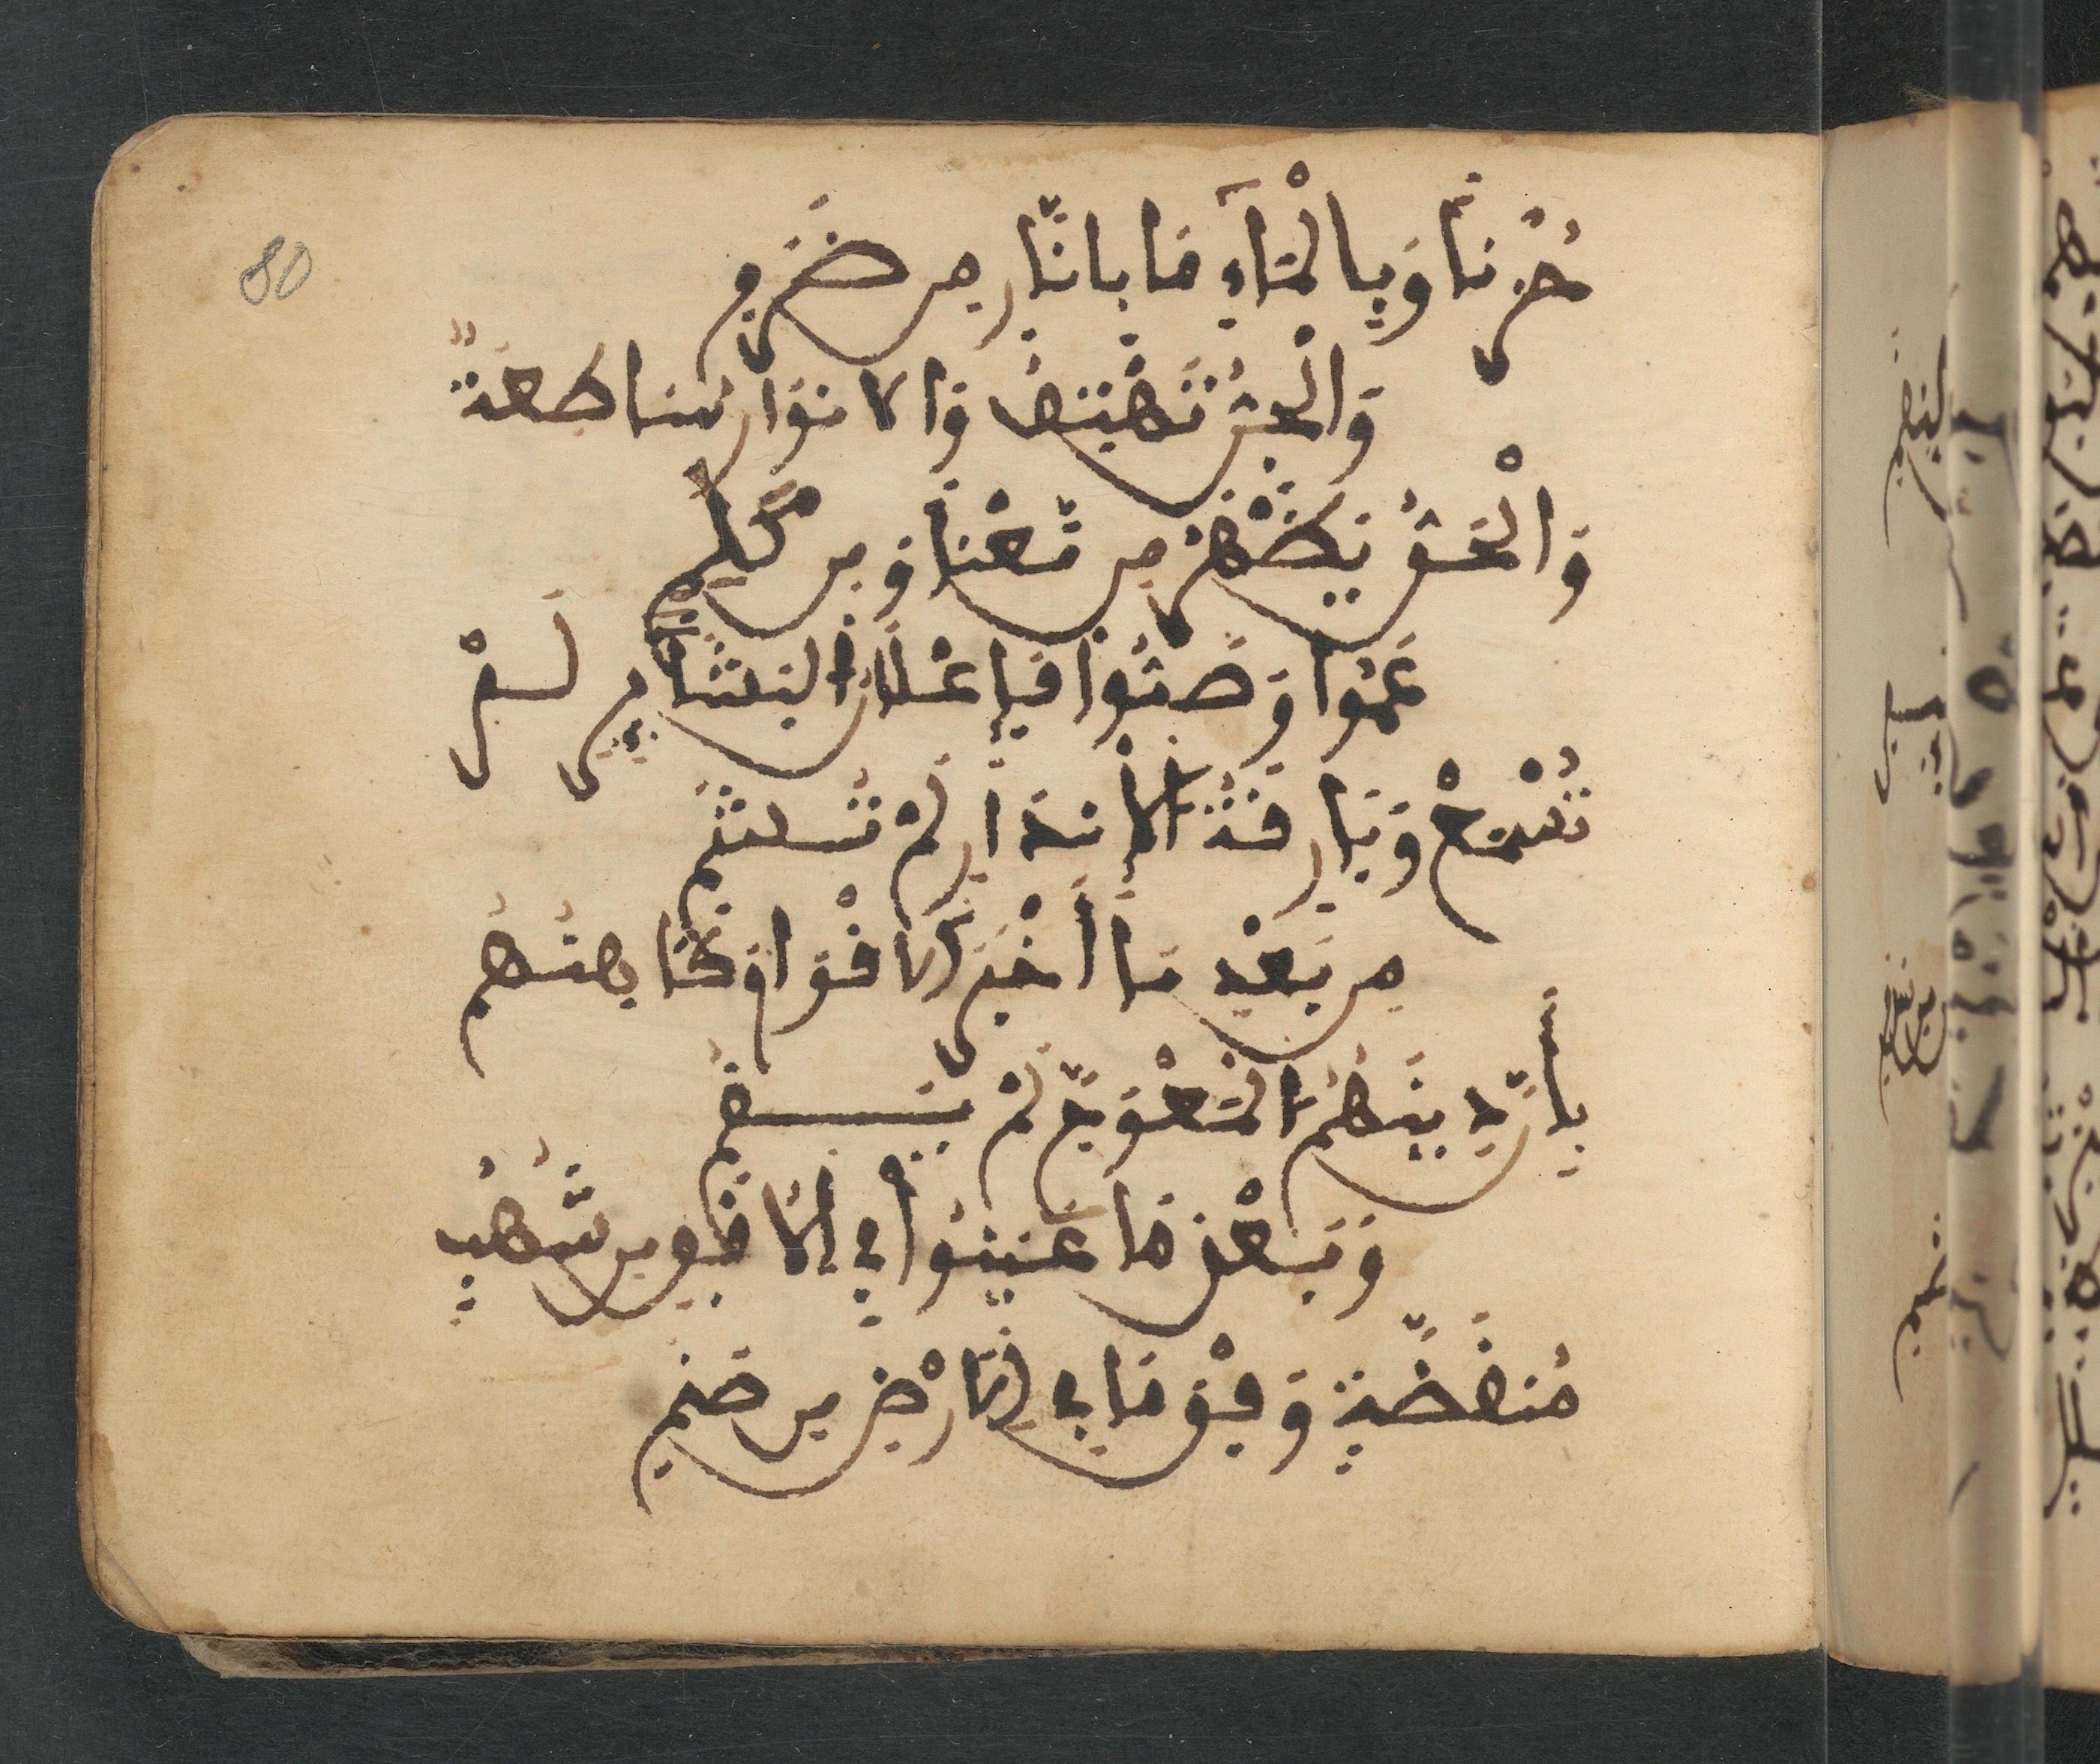 80
حُزْنًا وَبِالْمَآءِ مَا بِالنَّارِ مِن ضَرَمِ
وَالْجِنُّ تَهْتِفُ وَالانْوَارُ سَاطِعَةٌ
وَالْحَقُّ يَظْهَرُ مِن مَّعْنًا وَمِن كَلِمِ
عَمُوا وَصَمُّوا فَإِعْلَانُ الْبَشَآئِرِ لَمْ
تُسْمَعْ وَبَارِقَةُ الْأِنذَارِ لَمْ تُشَمِ
مِن بَعْدِ مَا أَخْبَرَ الَاقْوَامَ كَاهِنُهُم
بِأَنَّ دِينَهُمُ الْمُعْوَجَّ لَمْ يَقُمِ
وَبَعْدَ مَا عَايَنُوا فِي الُافْقِ مِن شُهُبٍ
مُنقَضَّةٍ وَفْقَ مَا فِي الَارْضِ مِن صَنَمِ